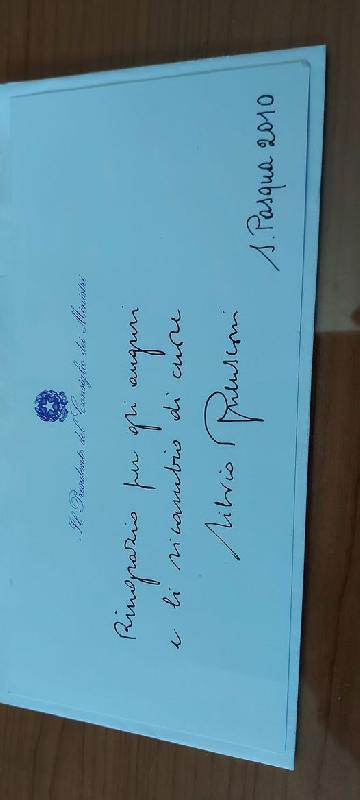 Il Presidente del Consiglio dei Ministri
Ringrazio per gli auguri
e li ricambio di cuore
Silvio Berlusconi
S. Pasqua 2010